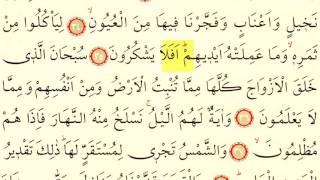 نَخٖيلٍ وَاَعْنَابٍ وَفَجَّرْنَا فٖيهَا مِنَ الْعُيُونِۙ ﴿٣٤﴾ لِيَأْكُلُوا مِنْ
ثَمَرِهٖۙ وَمَا عَمِلَتْهُ اَيْدٖيهِمْۜ اَفَلَا يَشْكُرُونَ ﴿٣٥﴾ سُبْحَانَ الَّذٖى
خَلَقَ الْاَزْوَاجَ كُلَّهَا مِمَّا تُنْبِتُ الْاَرْضُ وَمِنْ اَنْفُسِهِمْ وَمِمَّا
لَا يَعْلَمُونَ ﴿٣٦﴾ وَاٰيَةٌ لَهُمُ الَّيْلُۚ نَسْلَخُ مِنْهُ النَّهَارَ فَاِذَا هُمْ
مُظْلِمُونَۙ ﴿٣٧﴾ وَالشَّمْسُ تَجْرٖى لِمُسْتَقَرٍّ لَهَاۜ ذٰلِكَ تَقْدٖيرُ